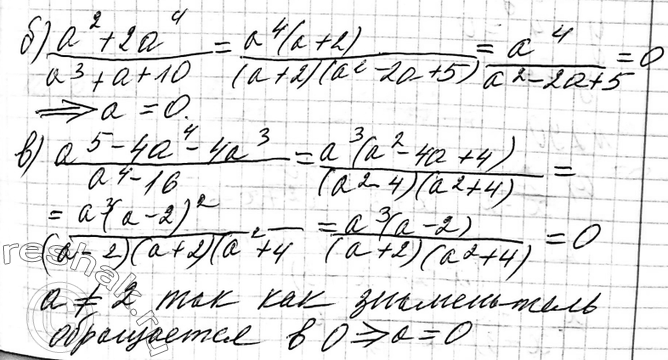 б) (a² + 2a⁴)/(a³ + a + 10) = (a⁴(a+2))/((a+2)(a² - 2a + 5)) = a⁴/(a² - 2a + 5) = 0
⟹ a = 0.
в) (a⁵ - 4a⁴ - 4a³)/(a⁴ - 16) = (a³(a² - 4a + 4))/((a² - 4)(a² + 4)) =
= (a³(a - 2)²)/((a - 2)(a + 2)(a² + 4) = (a³(a - 2))/((a + 2)(a² + 4)) = 0
a ≠ 2 так как знаменатель
обращается в 0 ⇒ a = 0